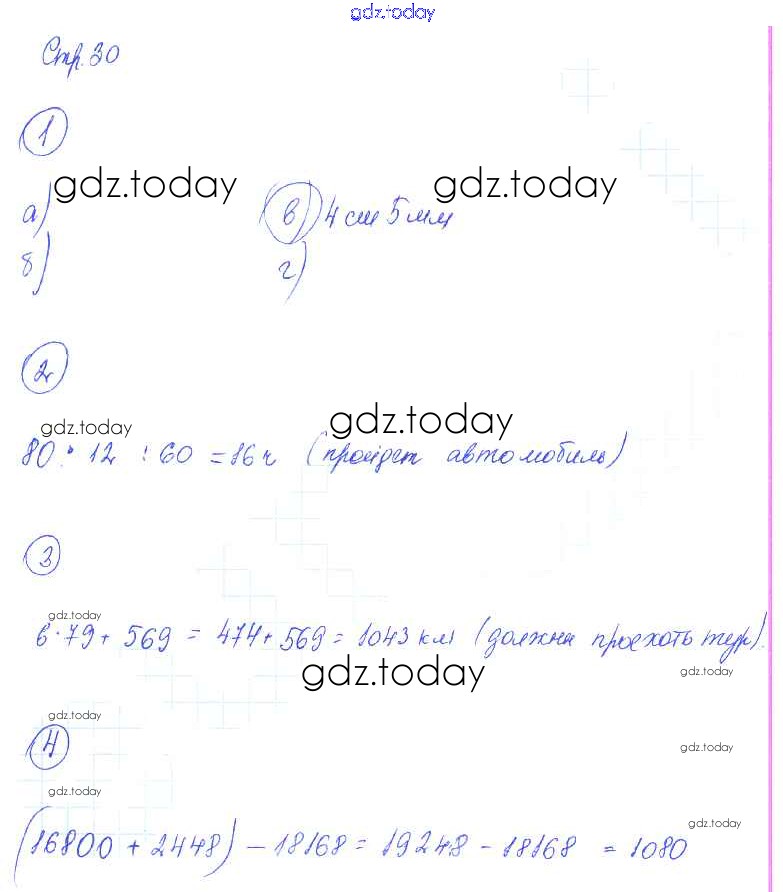 gdz.today
Стр. 30
1
gdz.today gdz.today
а) в) 4 см 5 мм
б) г)
2
gdz.today gdz.today
80 · 12 : 60 = 16 ч (пройдет автомобиль)
3
gdz.today
6 · 79 + 569 = 474 + 569 = 1043 км (должны проехать тур).
gdz.today gdz.today
gdz.today
4 gdz.today
gdz.today
gdz.today
(16800 + 2448) - 18168 = 19248 - 18168 = 1080